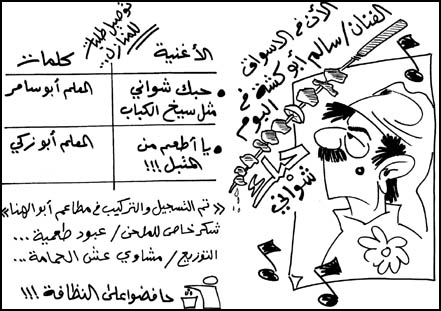 الأن في الاسواق
الفنان/ سالم أبو كشة في
البوم
حبك
شواني
توصيل طلبات
للمنازل..
الأغنية
كلمات
حبك شواني
مثل سيخ الكباب
المعلم أبو سامر
يا أطعم من
المتبل !!!
المعلم أبو زكي
« تم التسجيل والتركيب في مطاعم أبو الهنا »
شكر خاص للملحن / عبود طعمية ...
التوزيع / مشاوي عش الحمامة ...
حافضوا على النظافة !!!